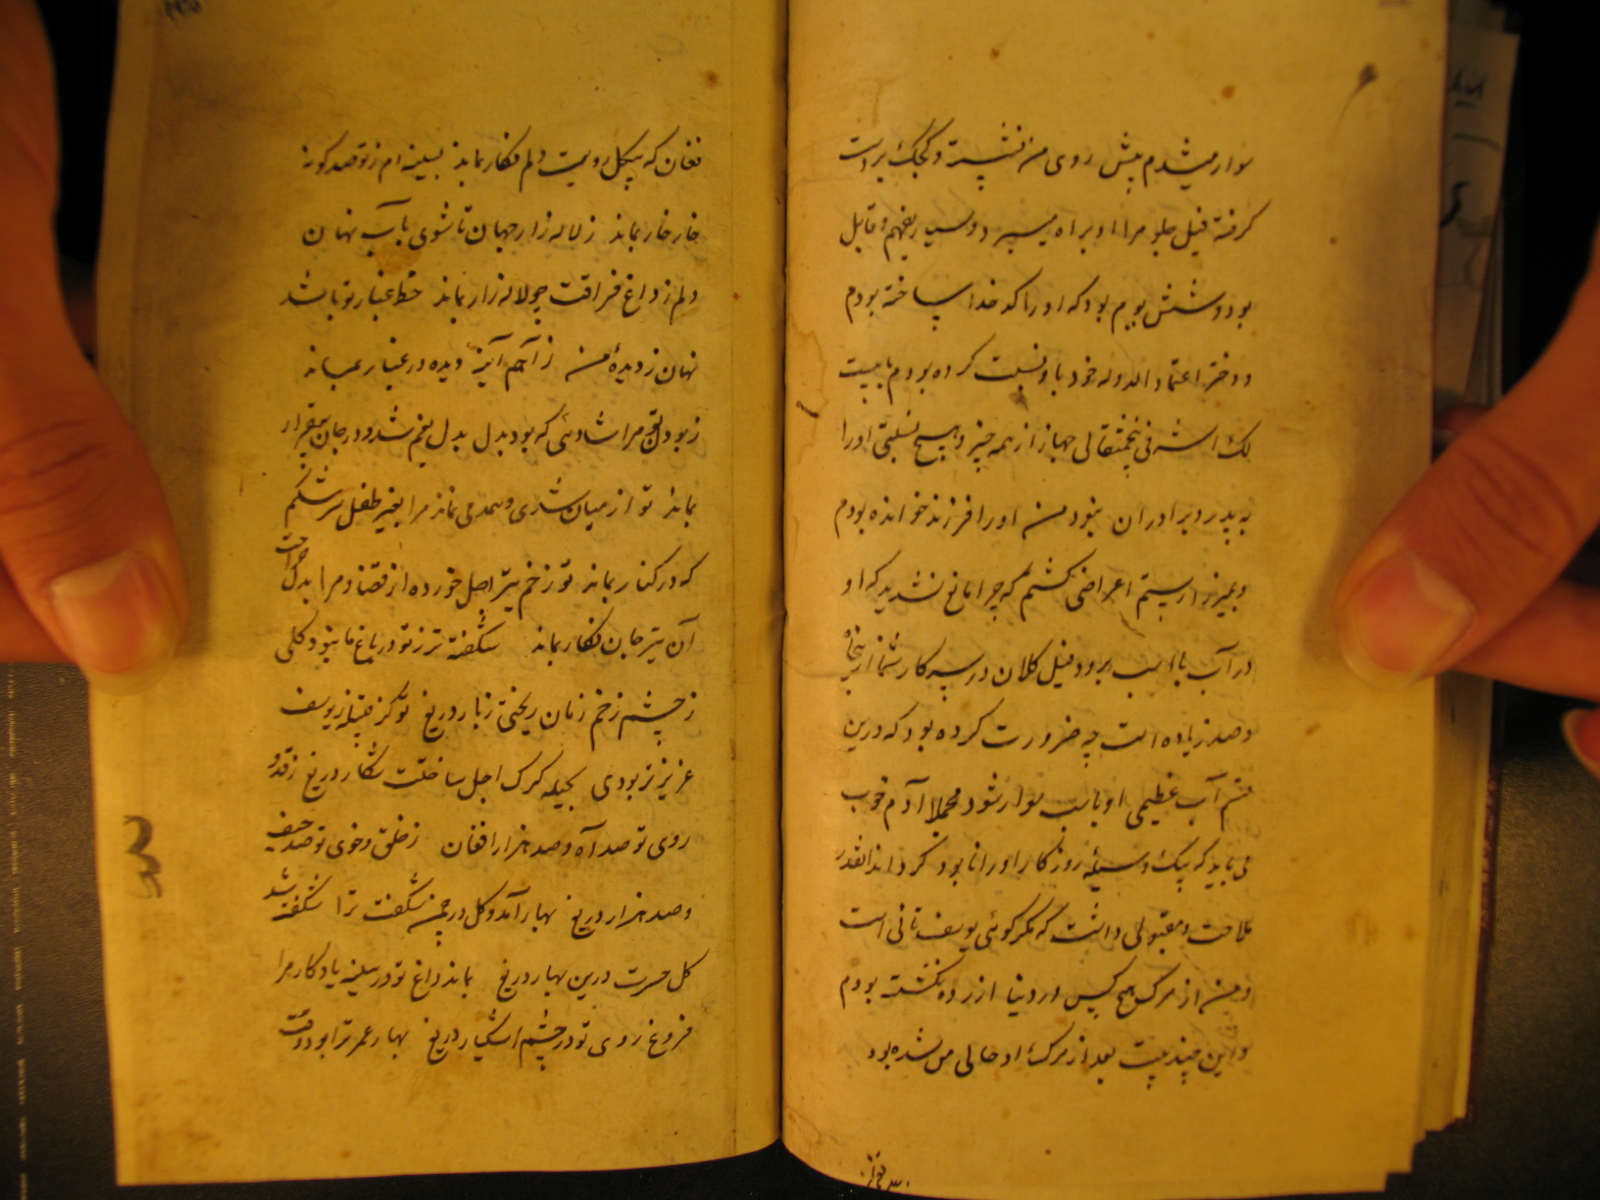 سوار میشدم پیش روی من نشسته و کجک بردست
گرفته فیل جلو مرا او براه میبرد و بسیار بفهم و قابل
بود و شش بودم بود که او را کدخدا ساخته بودم
و دختر اعتماد الدوله خود باو نسبت کرده بودم تا بیست
لک اشرفی پنجمثقالی جهاز از همه چیز و هیچ نسبتی او را
به پدر و برادران نبود من او را فرزند خوانده بودم
و بمیرزا رستم اعراضی گشتم که چرا مانع نشدید که او
در آب با اسب برود فیل کلان در سرکار شما از پنجاه
و صد زیاده است چه ضرورت کرده بود که درین
قسم آب عظیمی او با اسب سوار شود مجملا آدم خوب
می باید که یک وسیله روزگار او را نابود کرد اینقدر
ملاحت و مقبولی داشت که مگر گوئی یوسف ثانی است
و من از مرگ هیچ کس در دنیا آزرده نگشته بودم
و این چند بیت بعد از مرگ او حالی من شده بود
فغان که بیگل رویت دلم فگار بماند بسینه ام ز تو صد گونه
خار خار بماند ز لاله زار جهان تا شوی بآب نهان
دلم ز داغ فراقت چو لاله زار بماند خط غبار تو باشد
نهان ز دیدهٔ من ز آهم آینه دیده در غبار بماند
ز بودن تو مرا شادئی که بود بدل بدل بغم شد و در جان بیقرار
بماند تو از میان شدی و همدمی نماند مرا بغیر طفل سرشکم
که در کنار بماند تو زخم تیر اجل خورده از قضا و مرا بدل جراحت
آن تیر جان فگار بماند شگفته تر ز تو در باغ ما نبود گلی
ز چشم زخم زمان ریختی ز بار دریغ تو کز قبیله یوسف
عزیزتر بودی بحیله گرگ اجل ساختت شکار دریغ ز قد و
روی تو صد آه و صد هزار افغان ز خلق و خوی تو صد حیف
و صد هزار دریغ بهار آمد و گل در چمن شگفت ترا شگفته شد
گل حسرت درین بهار دریغ بماند داغ تو در سینه یادگار مرا
فروغ روی تو در چشم اشکبار دریغ بهار عمر ترا بود وقت